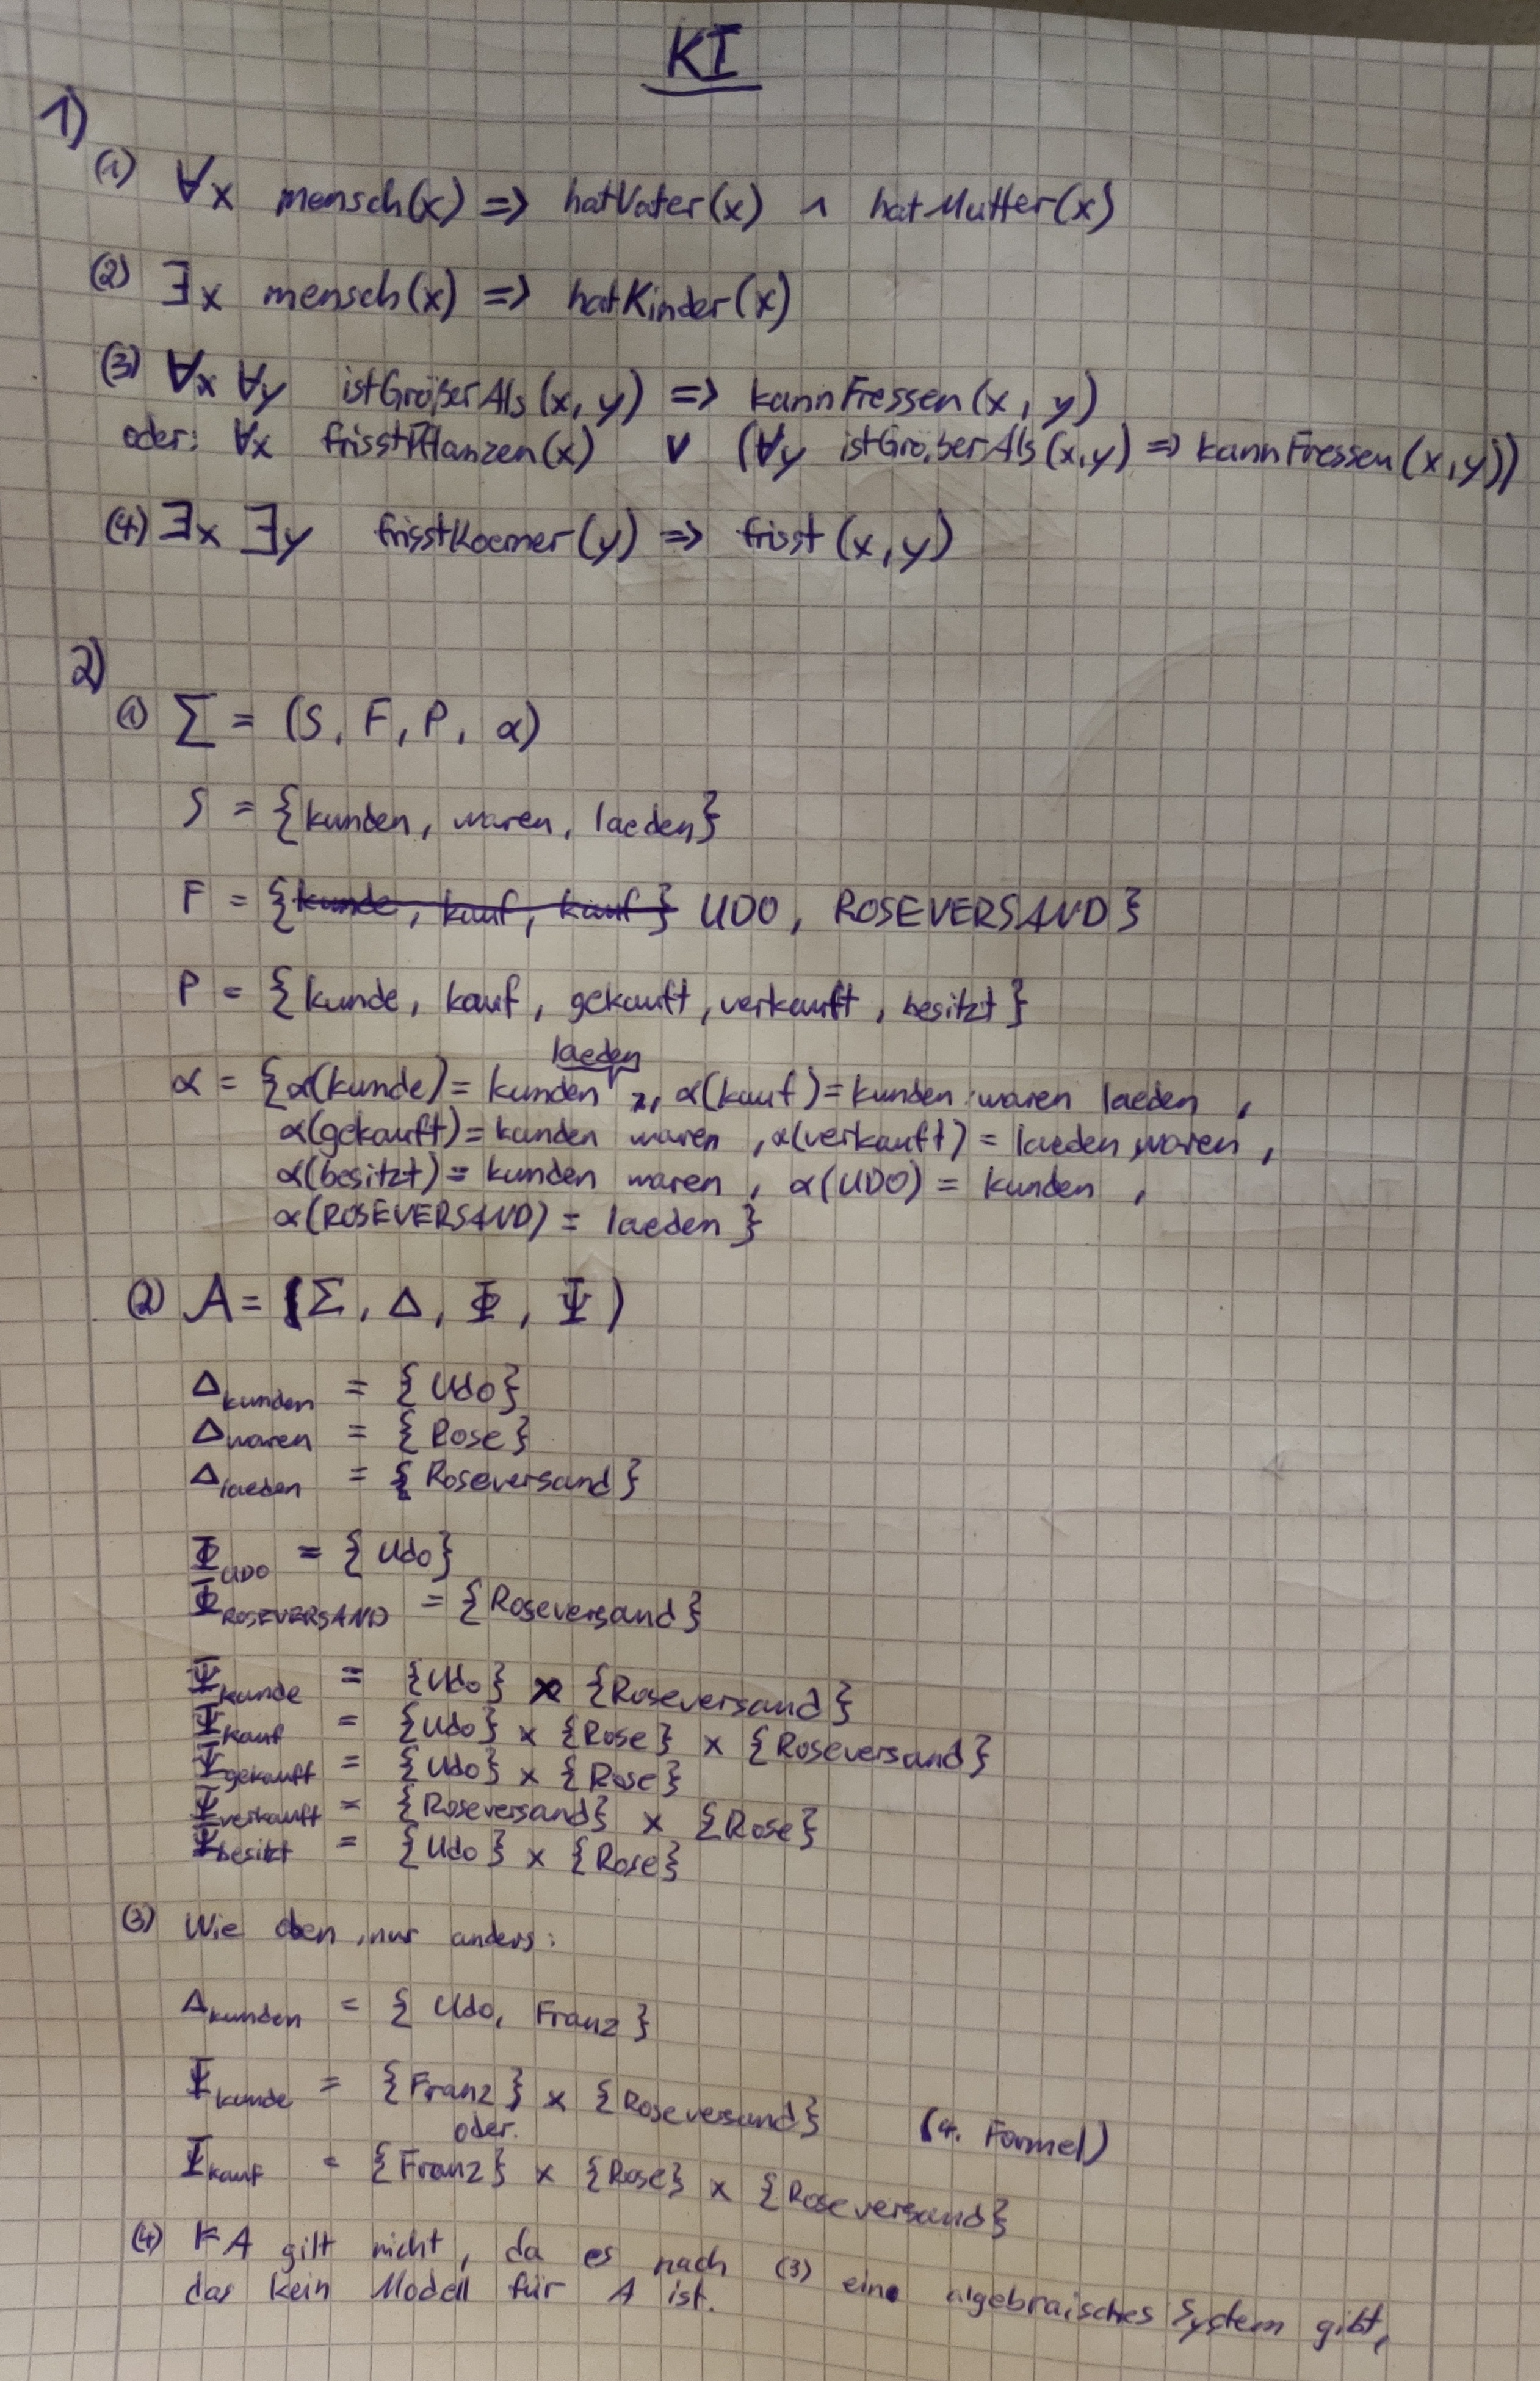 KI
1)
(1) ∀x mensch(x) => hatVater(x) ∧ hatMutter(x)
(2) ∃x mensch(x) => hatKinder(x)
(3) ∀x ∀y istGrößerAls(x, y) => kannFressen(x, y)
oder: ∀x frisstPflanzen(x) ∨ (∀y istGrößerAls(x,y) => kannFressen(x,y))
(4) ∃x ∃y frisstKoerner(y) => frisst(x,y)
2)
(1) Σ = (S, F, P, α)
S = {kunden, waren, laeden}
F = {kunde, kauf, kauf} UDO, ROSEVERSAND}
P = {kunde, kauf, gekauft, verkauft, besitzt}
laeden
α = {α(kunde) = kunden , α(kauf) = kunden waren laeden ,
α(gekauft) = kunden waren , α(verkauft) = laeden waren ,
α(besitzt) = kunden waren , α(UDO) = kunden ,
α(ROSEVERSAND) = laeden }
(2) A = (Σ, Δ, Φ, Ψ)
Δkunden = {Udo}
Δwaren = {Rose}
Δlaeden = {Roseversand}
ΦUDO = {Udo}
ΦROSEVERSAND = {Roseversand}
Ψkunde = {Udo} x {Roseversand}
Ψkauf = {Udo} x {Rose} x {Roseversand}
Ψgekauft = {Udo} x {Rose}
Ψverkauft = {Roseversand} x {Rose}
Ψbesitzt = {Udo} x {Rose}
(3) Wie oben, nur anders:
Δkunden = {Udo, Franz}
Ψkunde = {Franz} x {Roseversand}
oder: (4. Formel)
Ψkauf = {Franz} x {Rose} x {Roseversand}
(4) ⊨A gilt nicht, da es nach (3) ein algebraisches System gibt,
das kein Modell für A ist.